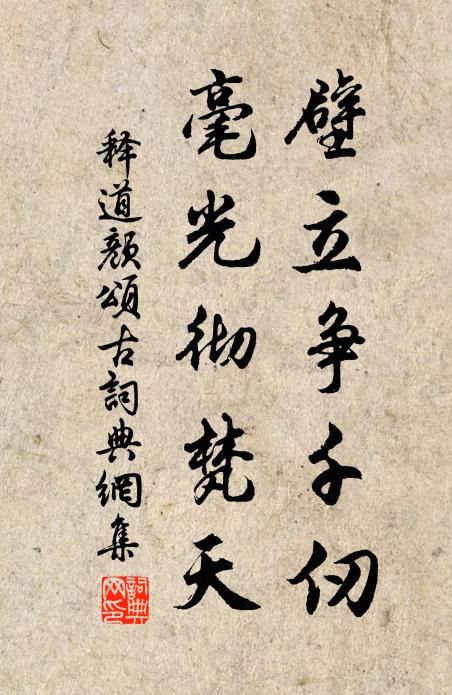 壁立争千仞
毫光彻梵天
释道颜颂古詞典網集
詞典網印